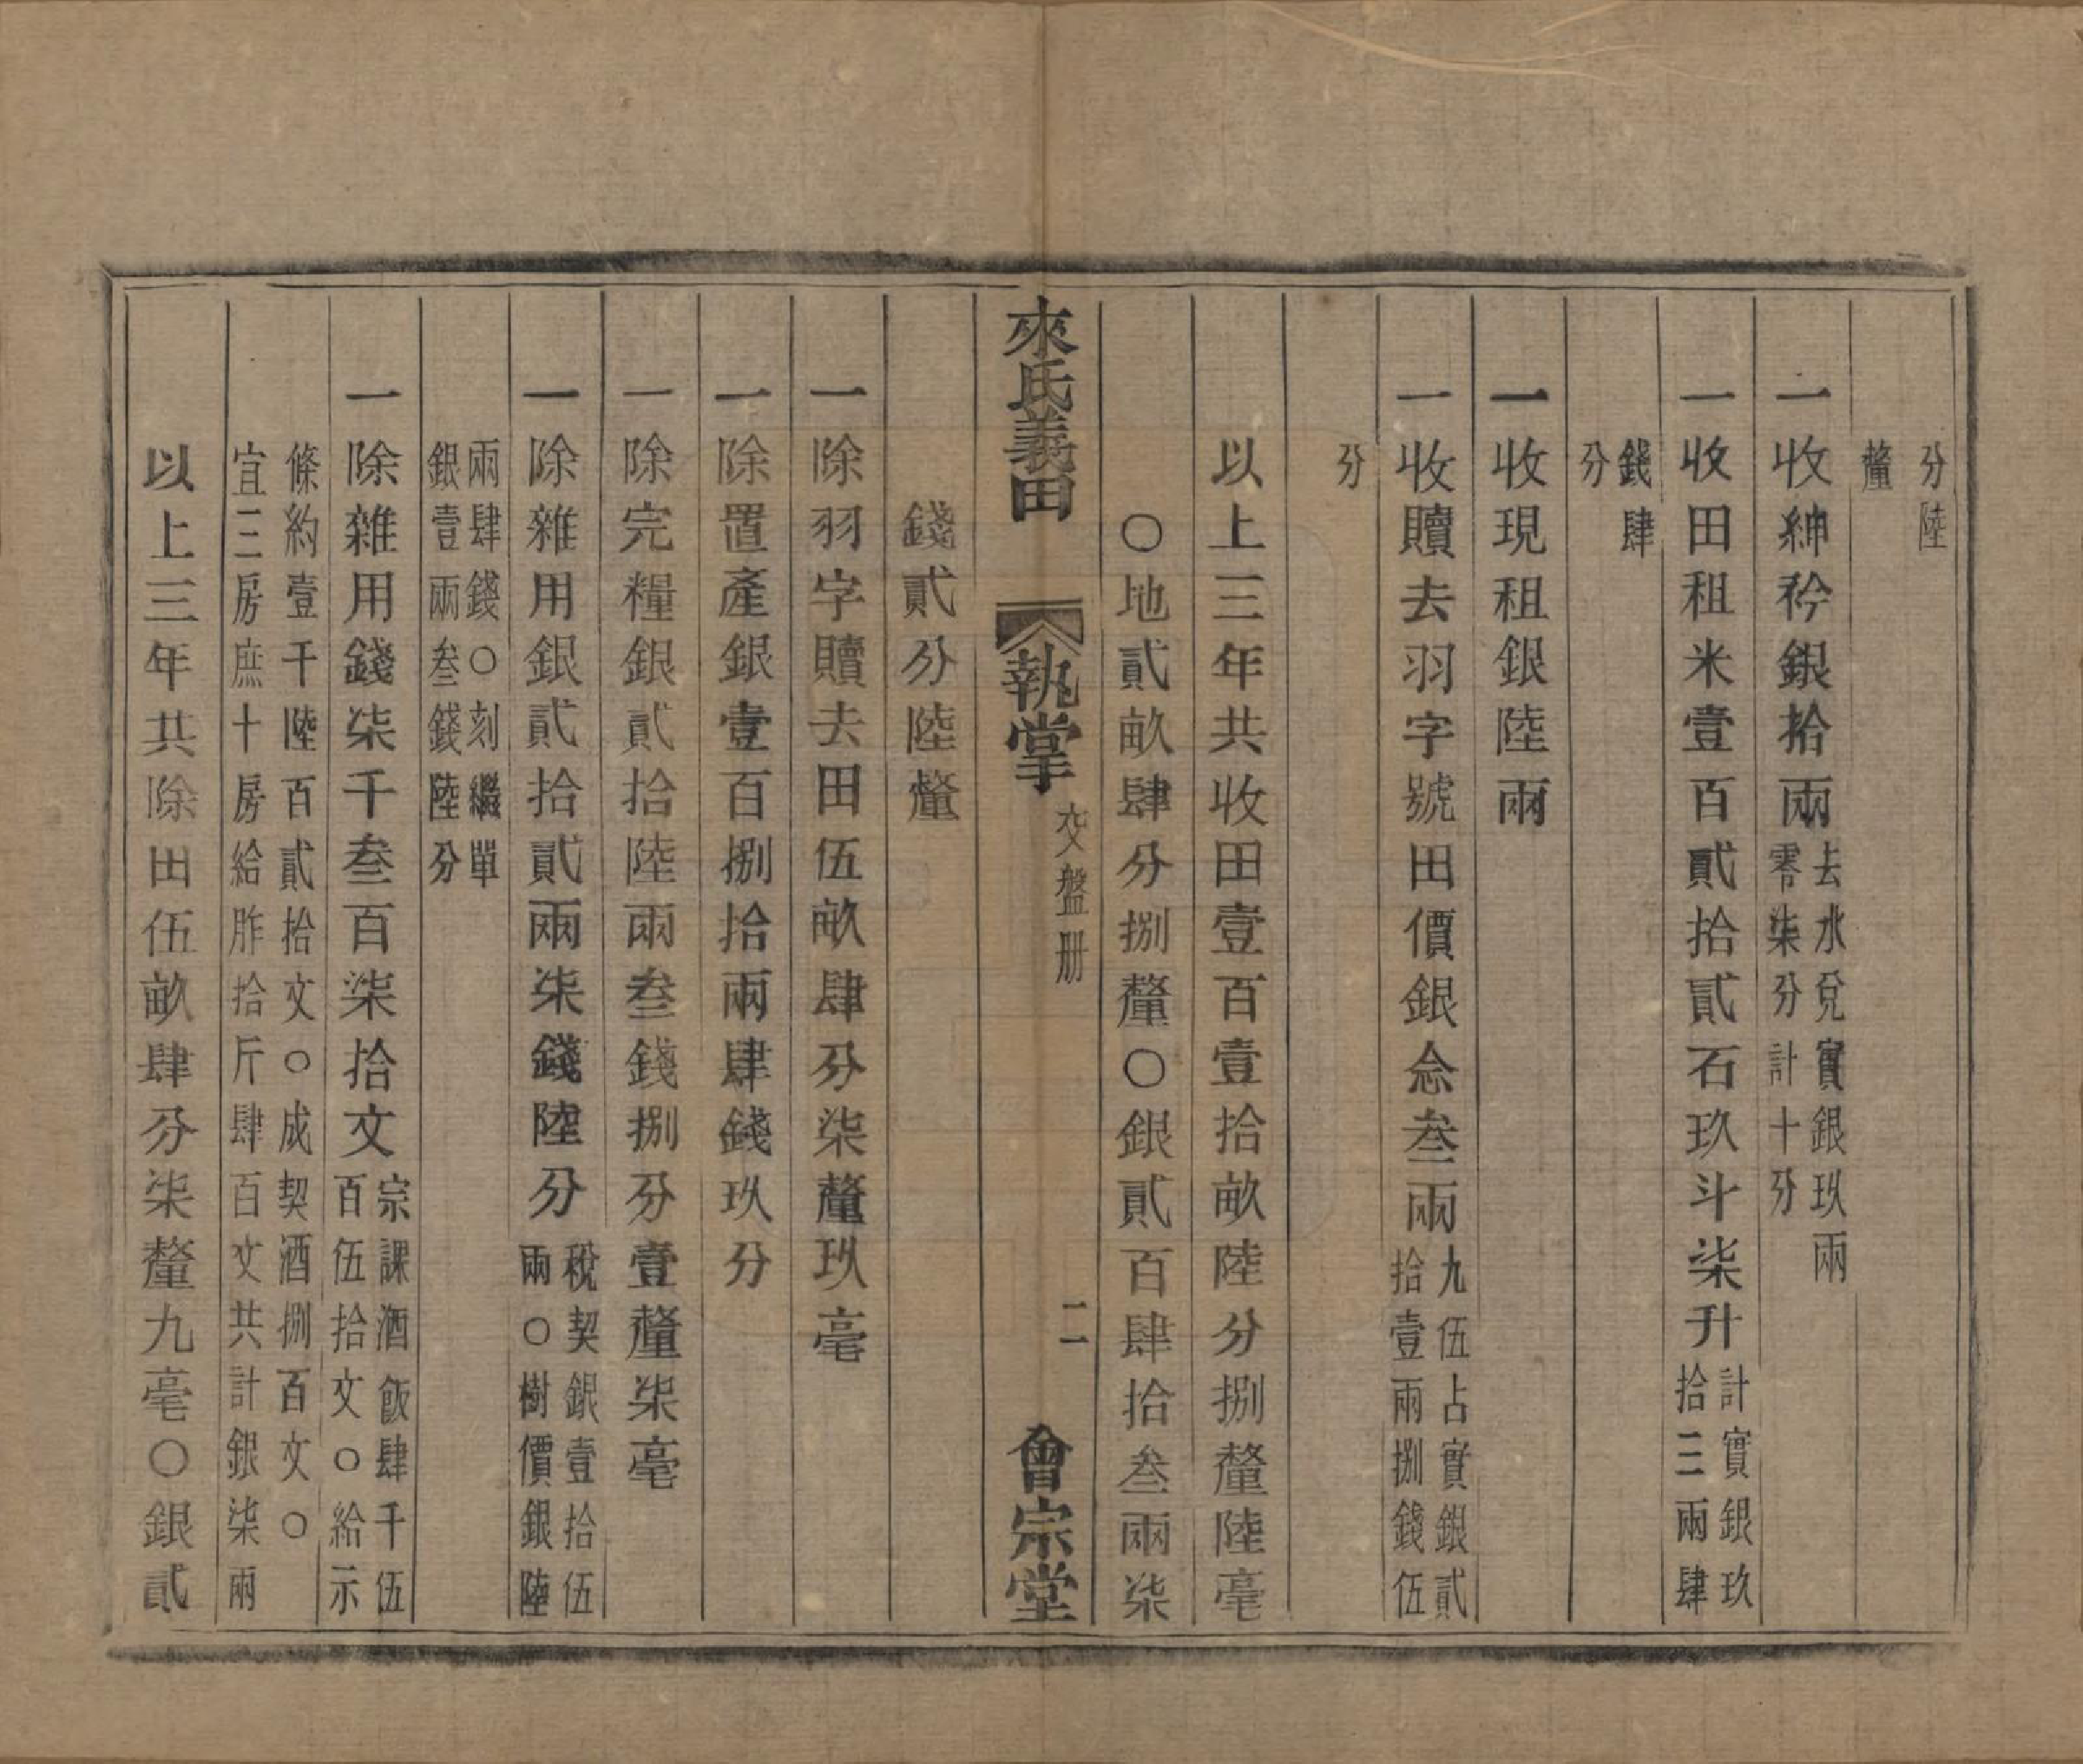 分陸
釐
一收紳矜銀拾兩去水兌實銀玖兩
零柒分計十分
一收田租米壹百貳拾貳石玖斗柒升計實銀玖
拾三兩肆
錢肆
分
一收現租銀陸兩
一收贖去羽字號田價銀念叁兩九伍占實銀貳
拾壹兩捌錢伍
分
以上三年共收田壹百壹拾畝陸分捌釐陸毫
○地貳畝肆分捌釐○銀貳百肆拾叁兩柒
來氏義田 執掌 交盤册 二 會宗堂
錢貳分陸釐
一除羽字贖去田伍畝肆分柒釐玖毫
一除置產銀壹百捌拾兩肆錢玖分
一除完糧銀貳拾陸兩叁錢捌分壹釐柒毫
一除雜用銀貳拾貳兩柒錢陸分稅契銀壹拾伍
兩○樹價銀陸
兩肆錢○刻繼單
銀壹兩叁錢陸分
一除雜用錢柒千叁百柒拾文宗課酒飯肆千伍
百伍拾文○給示
條約壹千陸百貳拾文○成契酒捌百文○
宜三房庶十房給胙拾斤肆百文共計銀柒兩
以上三年共除田伍畝肆分柒釐九毫○銀貳